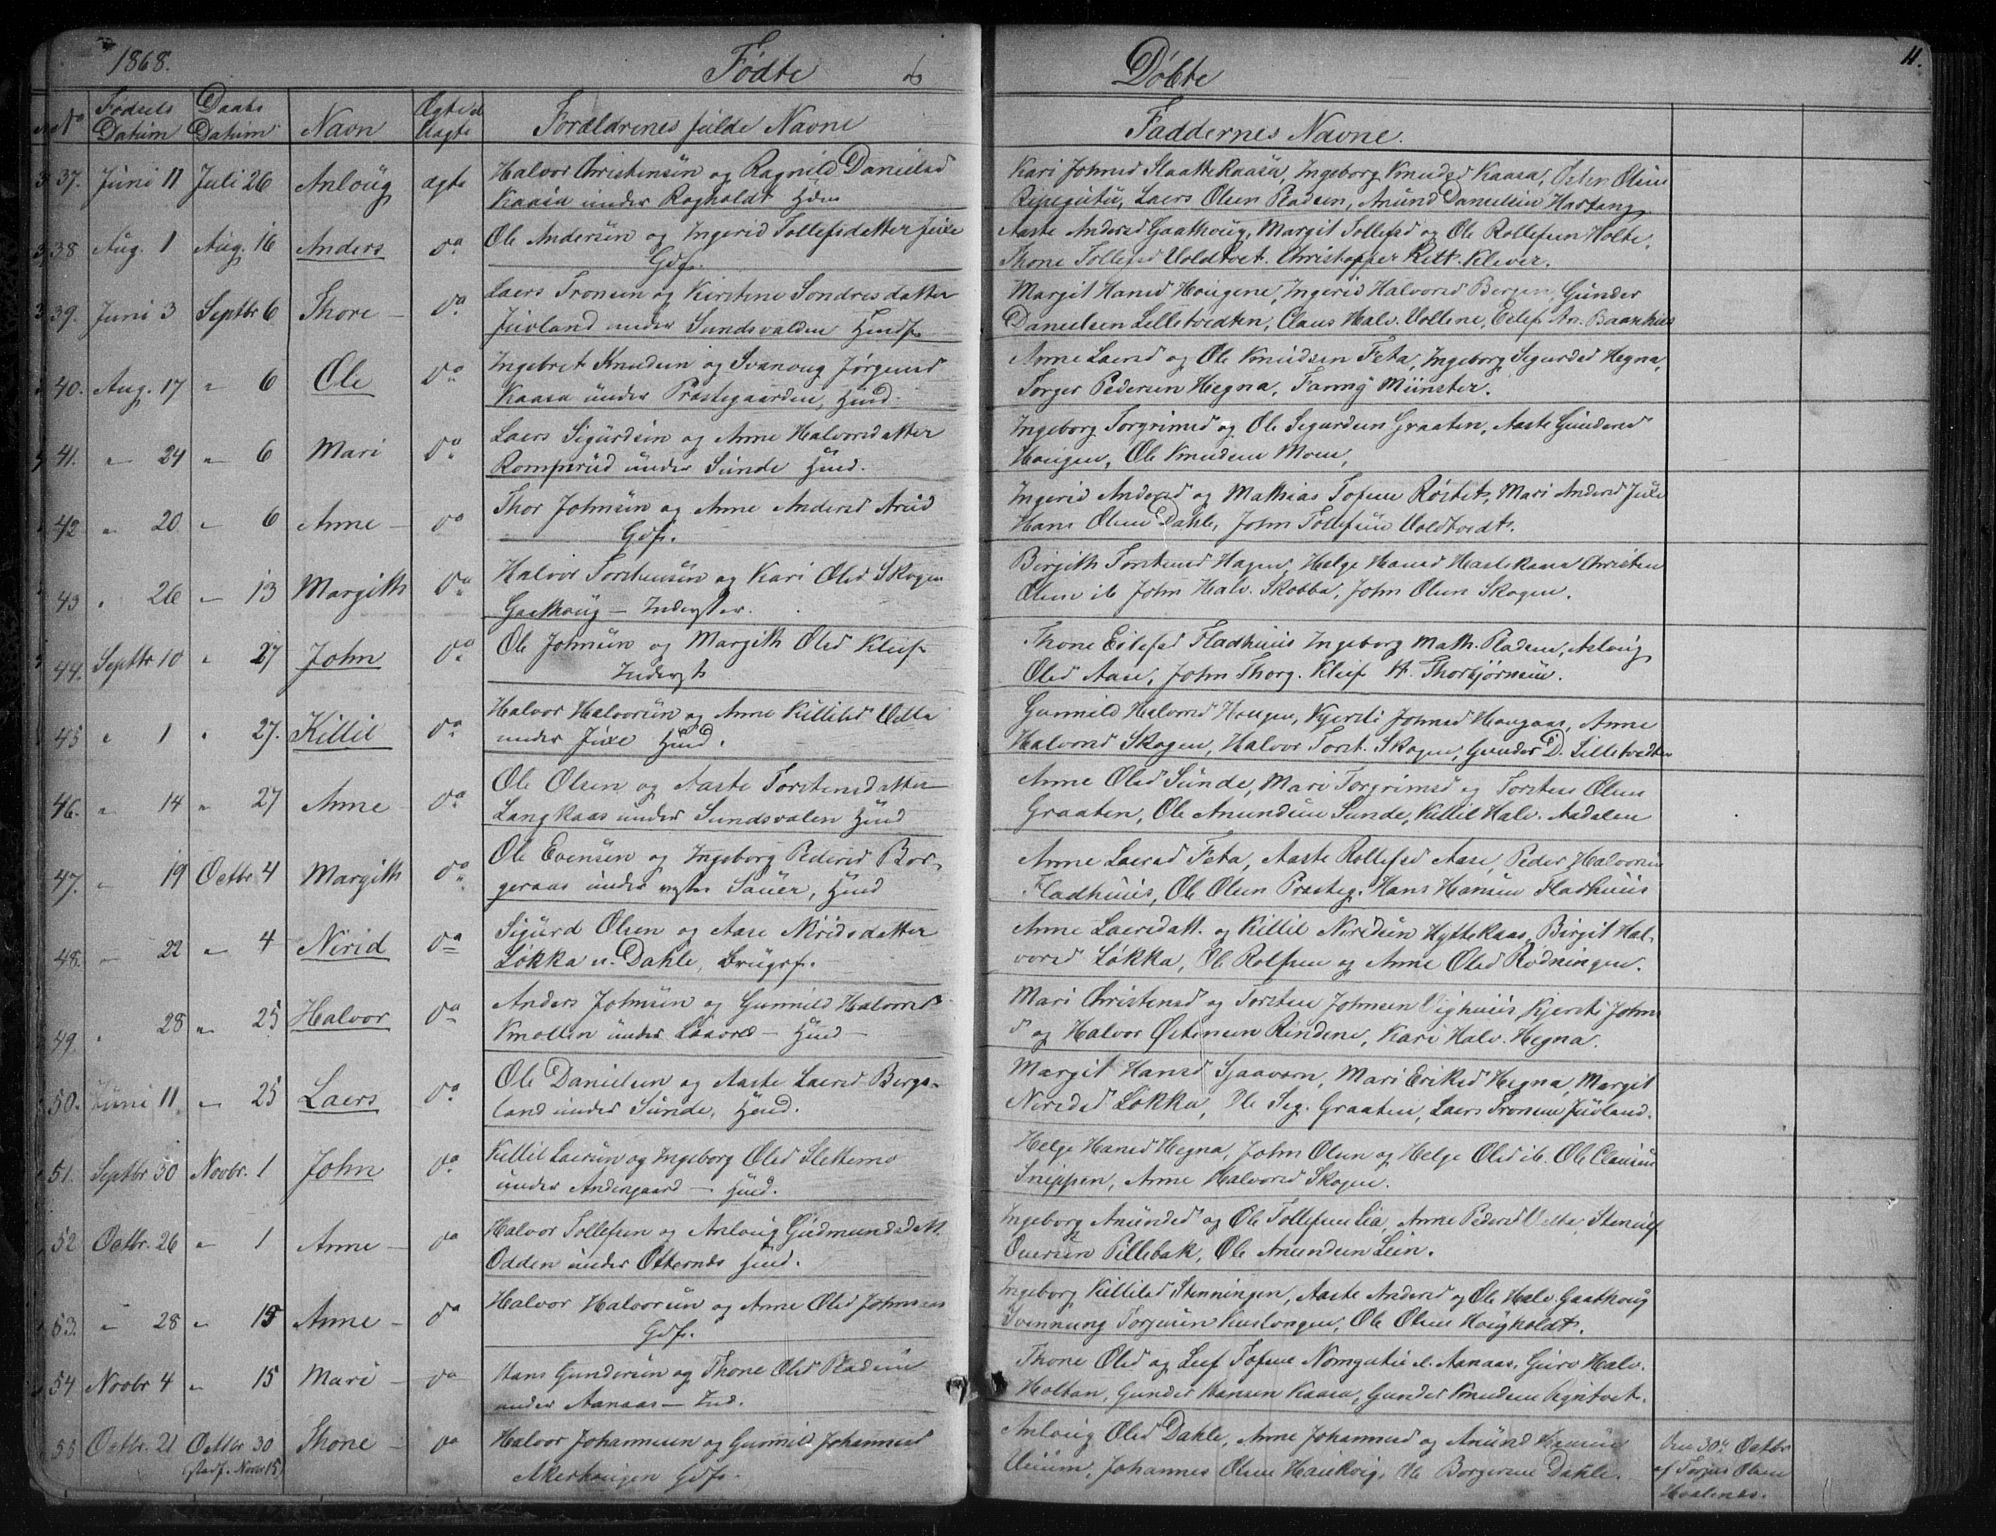 1868.
Födte &
Döbte
11.
No
Födsels Datum
Daabs Datum
Navn
Ægte el. Uægte
Forældrenes fulde Navne
Faddernes Navne.
37. Juni 11 Juli 26 Anlaug ægte Halvor Christensön og Ragnild Danielsd
Kaasa under Ragholdt Hdm
Kari Johnsd Slaattekaasa, Ingeborg Knudsd Kaasa, Osten Olsen
Ripegutu, Laers Olsen Pladsen, Anund Danielsen Hartang
38 Aug. 1 Aug. 16 Anders do Ole Andersön og Ingerid Tollefsdatter Juxe
Gdf.
Aaste Andersd Gaathoug, Margit Tollefsd og Ole Rollefsen Holte,
Thone Tollefsd Voldtvet. Christopher Klever.
39. Juni 3 Septbr 6 Thore do Laers Tronsen og Kirstine Sondresdatter
Juvland under Sundsvalden Husd
Margit Hansd Hougene, Ingerid Halvorsd Bergen, Gunder
Danielsen Lilletvedten, Claus Halv. Vollene,
40. Aug. 17 " 6 Ole do Ingebret Knudsen og Svanoug Jörgensd
Kaasa under Præstegaarden, Husd.
Anne Laersd og Ole Knudsen Feta, Ingeborg Sigurdsd Hegna,
Torger Pedersen Hegna, Fanny Münster.
41. " 24 " 6 Mari do Laers Sigurdsön og Anne Halvorsdatter
Romperud under Sunde Husd.
Ingeborg Torgrimsd og Ole Segurdsen Graaten, Aaste Gundersd
Haugen, Ole Knudsen Moen,
42 " 20 " 6 Anne do Thor Johnsön og Anne Andersd Arud
Gdf.
Ingerid Andersd og Mathias Tofsen Röstet, Mari Andersd Juxe
Hans Olsen Dahle, John Tollefsen Voldtvedt.
43 " 26 " 13 Margith do Halvor Torstensön og Kari Olsd Skogen
Gaathoug - Inderster.
Birgith Torstensd Hagen, Helge Hansd Haslekaasa Christen
Olsen ib John Halv. Skobba, John Olsen Skogen.
44. Septbr 10 " 27 John do Ole Johnsen og Margith Olsd Kleif
Inderst
Thone Eilefsd Fladhuus Ingeborg Math. Pladsen, Aslaug
Olsd Aase, John Thorg. Kleif H. Thorbjörnsen.
45 " 1 " 27. Killil do Halvor Halvorsen og Anne Killilsd Odla
under Juxe Husd.
Gunnild Halvorsd Haugen, Kjersti Johnsd Haugaas, Anne
Halvorsd Skogen, Halvor Torst. Skogen, Gunder D. Lilletvedten
46. " 14 " 27 Anne do Ole Olsen og Aaste Torstensdatter
Langkaas under Sundsvalen Husd
Anne Olsd Sunde, Mari Torgrimsd og Torsten Olsen
Graaten, Ole Anundsen Sunde, Killil Halv. Aadalen
47. " 19 Octbr 4 Margith do Ole Evensen og Ingeborg Pedersd Bor-
geraas under vestre Sauer, Husd
Anne Laersd Feta, Aaste Rollefsd Aase, Peder Halvorsen
Fladhuus, Ole Olsen Præsteg. Hans Hansen Fladhuus
48. " 22 " 4 Nirid do Sigurd Olsen og Aase Niridsdatter
Løkka u. Dahle, Brugsf.
Anne Laersdatt. og Killil Niridsen Hyttekaas, Birgit Hal-
vorsd Løkka, Ole Rolfsen og Anne Olsd Rødningen.
49. " 28 " 25 Halvor do Anders Johnsen og Gunnild Halvorsd
Knollen under Laavred - Husd
Mari Christensd og Torsten Johnsen Vighuus, Kjersti Johns
d og Halvor Østensen Rindene, Kari Halv. Hegna.
50. Juni 11. " 25 Laers do Ole Danielsen og Aaste Laersd Bergs-
land under Sunde, Husd.
Margit Hansd Sjaavarn, Mari Eriksd Hegna, Margit
Niredsd Løkka, Ole Seg. Graaten, Laers Tronsen Juvland.
51. Septbr. 30 Novbr. 1 John do Killil Laersen og Ingeborg Olsd Slettemo
under Andersgaard - Husd.
Helge Hansd Hegna, John Olsen og Helge Olsd ib. Ole Clausen
Snippen, Anne Halvorsd Skogen.
52 Octbr. 26 " 1 Anne do Halvor Tollefsen og Anlaug Gudmundsdatt.
Odden under Otternes Husd.
Ingeborg Anundsd og Ole Tollefsen Lia, Anne Pedersd
Oversen Pillebak, Ole Anundsen Lein.
53. " 28 " 15 Anne do Halvor Halvorsen og Anne Olsd Johnsaas
Gdf.
Ingeborg Killilsd Stenningen, Aaste Andersd og Ole Halv. Gaathoug
Svennung Torjusen Kuslongen, Ole Olsen Houghholdt.
54 Novbr 4 " 15 Mari do Hans Gundersen og Thone Olsd Pladsen
under Aanaas - Ind.
Thone Olsd og Leif Tofsen Aanaas, Guro Halv.
Holtan, Gunder Hansen Kaasa, Gunder Knudsen
55 Octbr. 21 Octbr 30 Thone do Halvor Johannesen og Gunnild Johannesd
(stadf. Novbr 15)
Akerhaugen Gdf.
Anlaug Olsd Dahle, Anne Johannesd og Anund Hansen
Johannes Olsen Haukvig, Ole Borgersen Dahle.
Den 30te Octbr
af Torjus Olsen